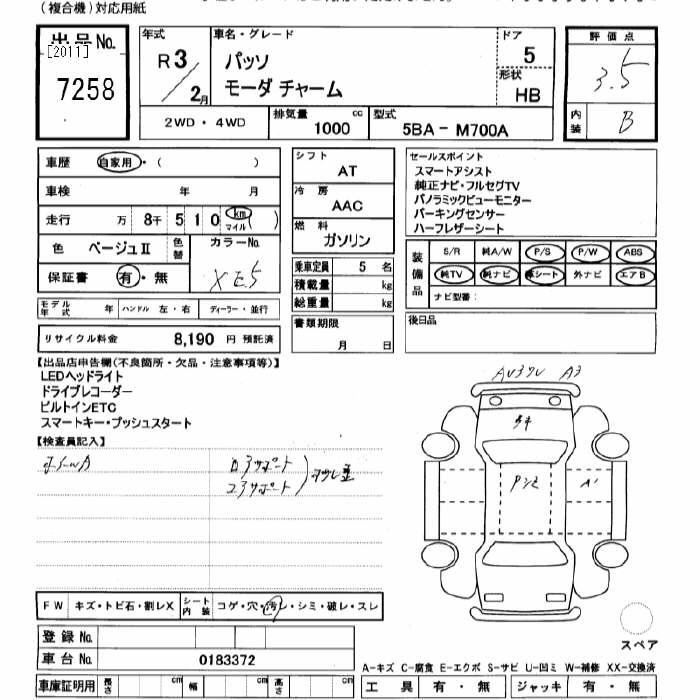 (複合機)対応用紙
出品No.
[2011]
7258
年式
R3/2月
車名・グレード
パッソ
モーダ チャーム
ドア
5
形状
HB
評価点
3.5
内装
B
2WD・4WD
排気量
1000 cc
型式
5BA - M700A
車歴 自家用・( )
車検 年 月
走行 万 8千 5 1 0 km マイル )
色 ベージュⅡ 色替
カラーNo.
XE5
保証書 有・無
モデル年式 年 ハンドル 左・右 ディーラー・並行
リサイクル料金 8,190 円 預託済
シフト
AT
冷房
AAC
燃料
ガソリン
乗車定員 5 名
積載量 kg
総重量 kg
書類期限
月 日
セールスポイント
スマートアシスト
純正ナビ・フルセグTV
パノラミックビューモニター
パーキングセンサー
ハーフレザーシート
装備品
S/R 純A/W P/S P/W ABS
純TV 純ナビ 革シート 外ナビ エアB
ナビ型番:
後日品
【出品店申告欄(不良箇所・欠品・注意事項等)】
LEDヘッドライト
ドライブレコーダー
ビルトインETC
スマートキー・プッシュスタート
【検査員記入】
ロアサポート
コアサポート
AU3 A3
キ
A1
FW キズ・トビ石・割レX シート内装 コゲ・穴・汚レ・シミ・破レ・スレ
登録No.
車台No. 0183372
スペア
A-キズ C-腐食 E-エクボ S-サビ U-凹ミ W-補修 XX-交換済
車庫証明用 長さ cm 幅 cm 高さ cm
工具 有・無 ジャッキ 有・無